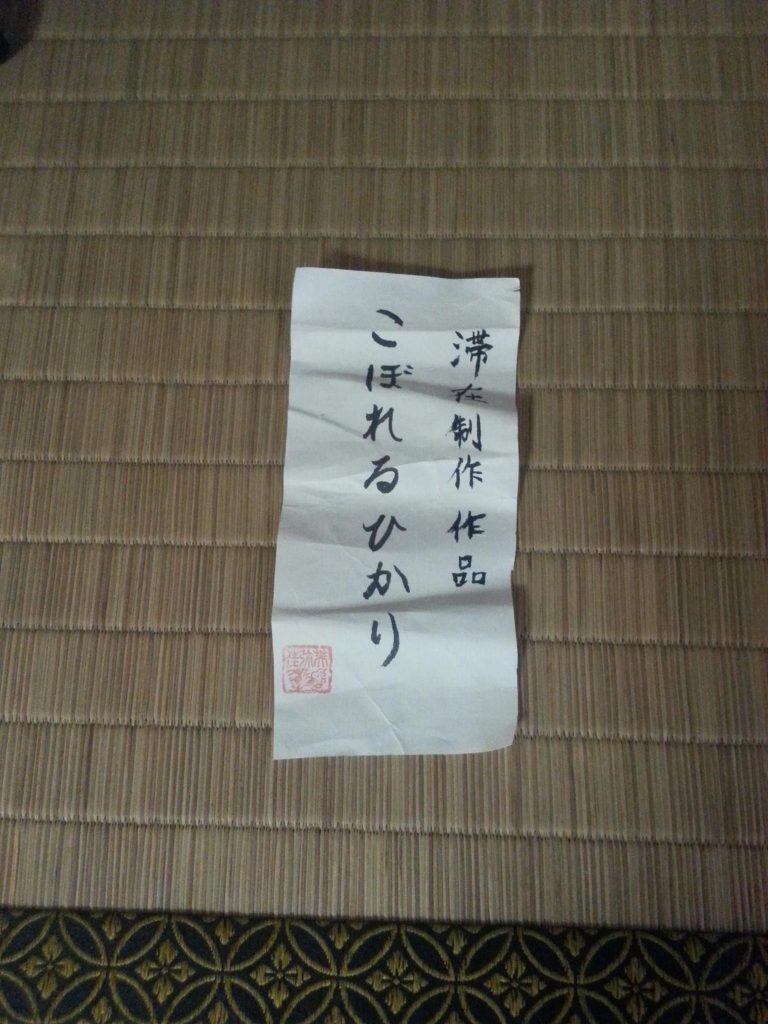 滞在制作 作品
こぼれるひかり